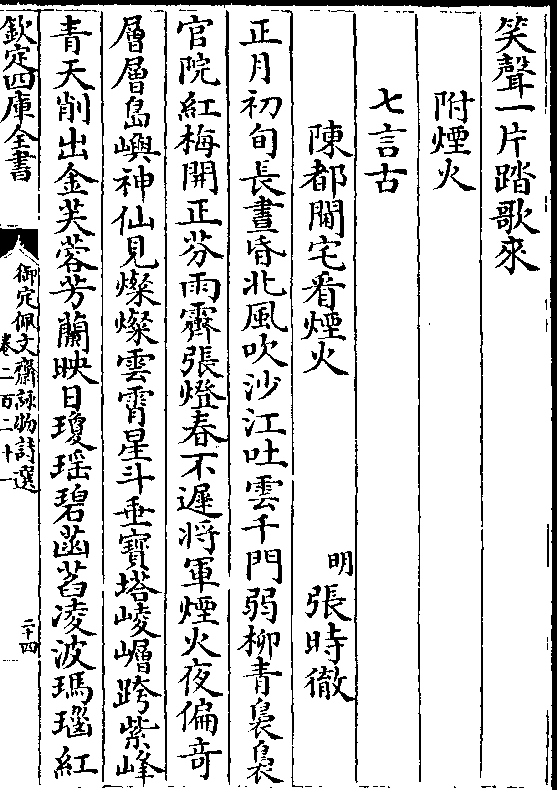 笑聲一片踏歌來
附煙火
七言古
陳都閫宅看煙火
明張時徹
正月初旬長晝昏北風吹沙江吐雲千門弱柳青裊裊
官院紅梅開正芬雨霽張燈春不遲將軍煙火夜偏竒
層層島嶼神仙見燦燦雲霄星斗垂寶塔崚嶒跨紫峰
青天削出金芙蓉芳蘭映日瓊瑶碧菡萏凌波瑪瑙紅
欽定四庫全書
御定佩文齋詠物詩選
卷二百二十一
二十四